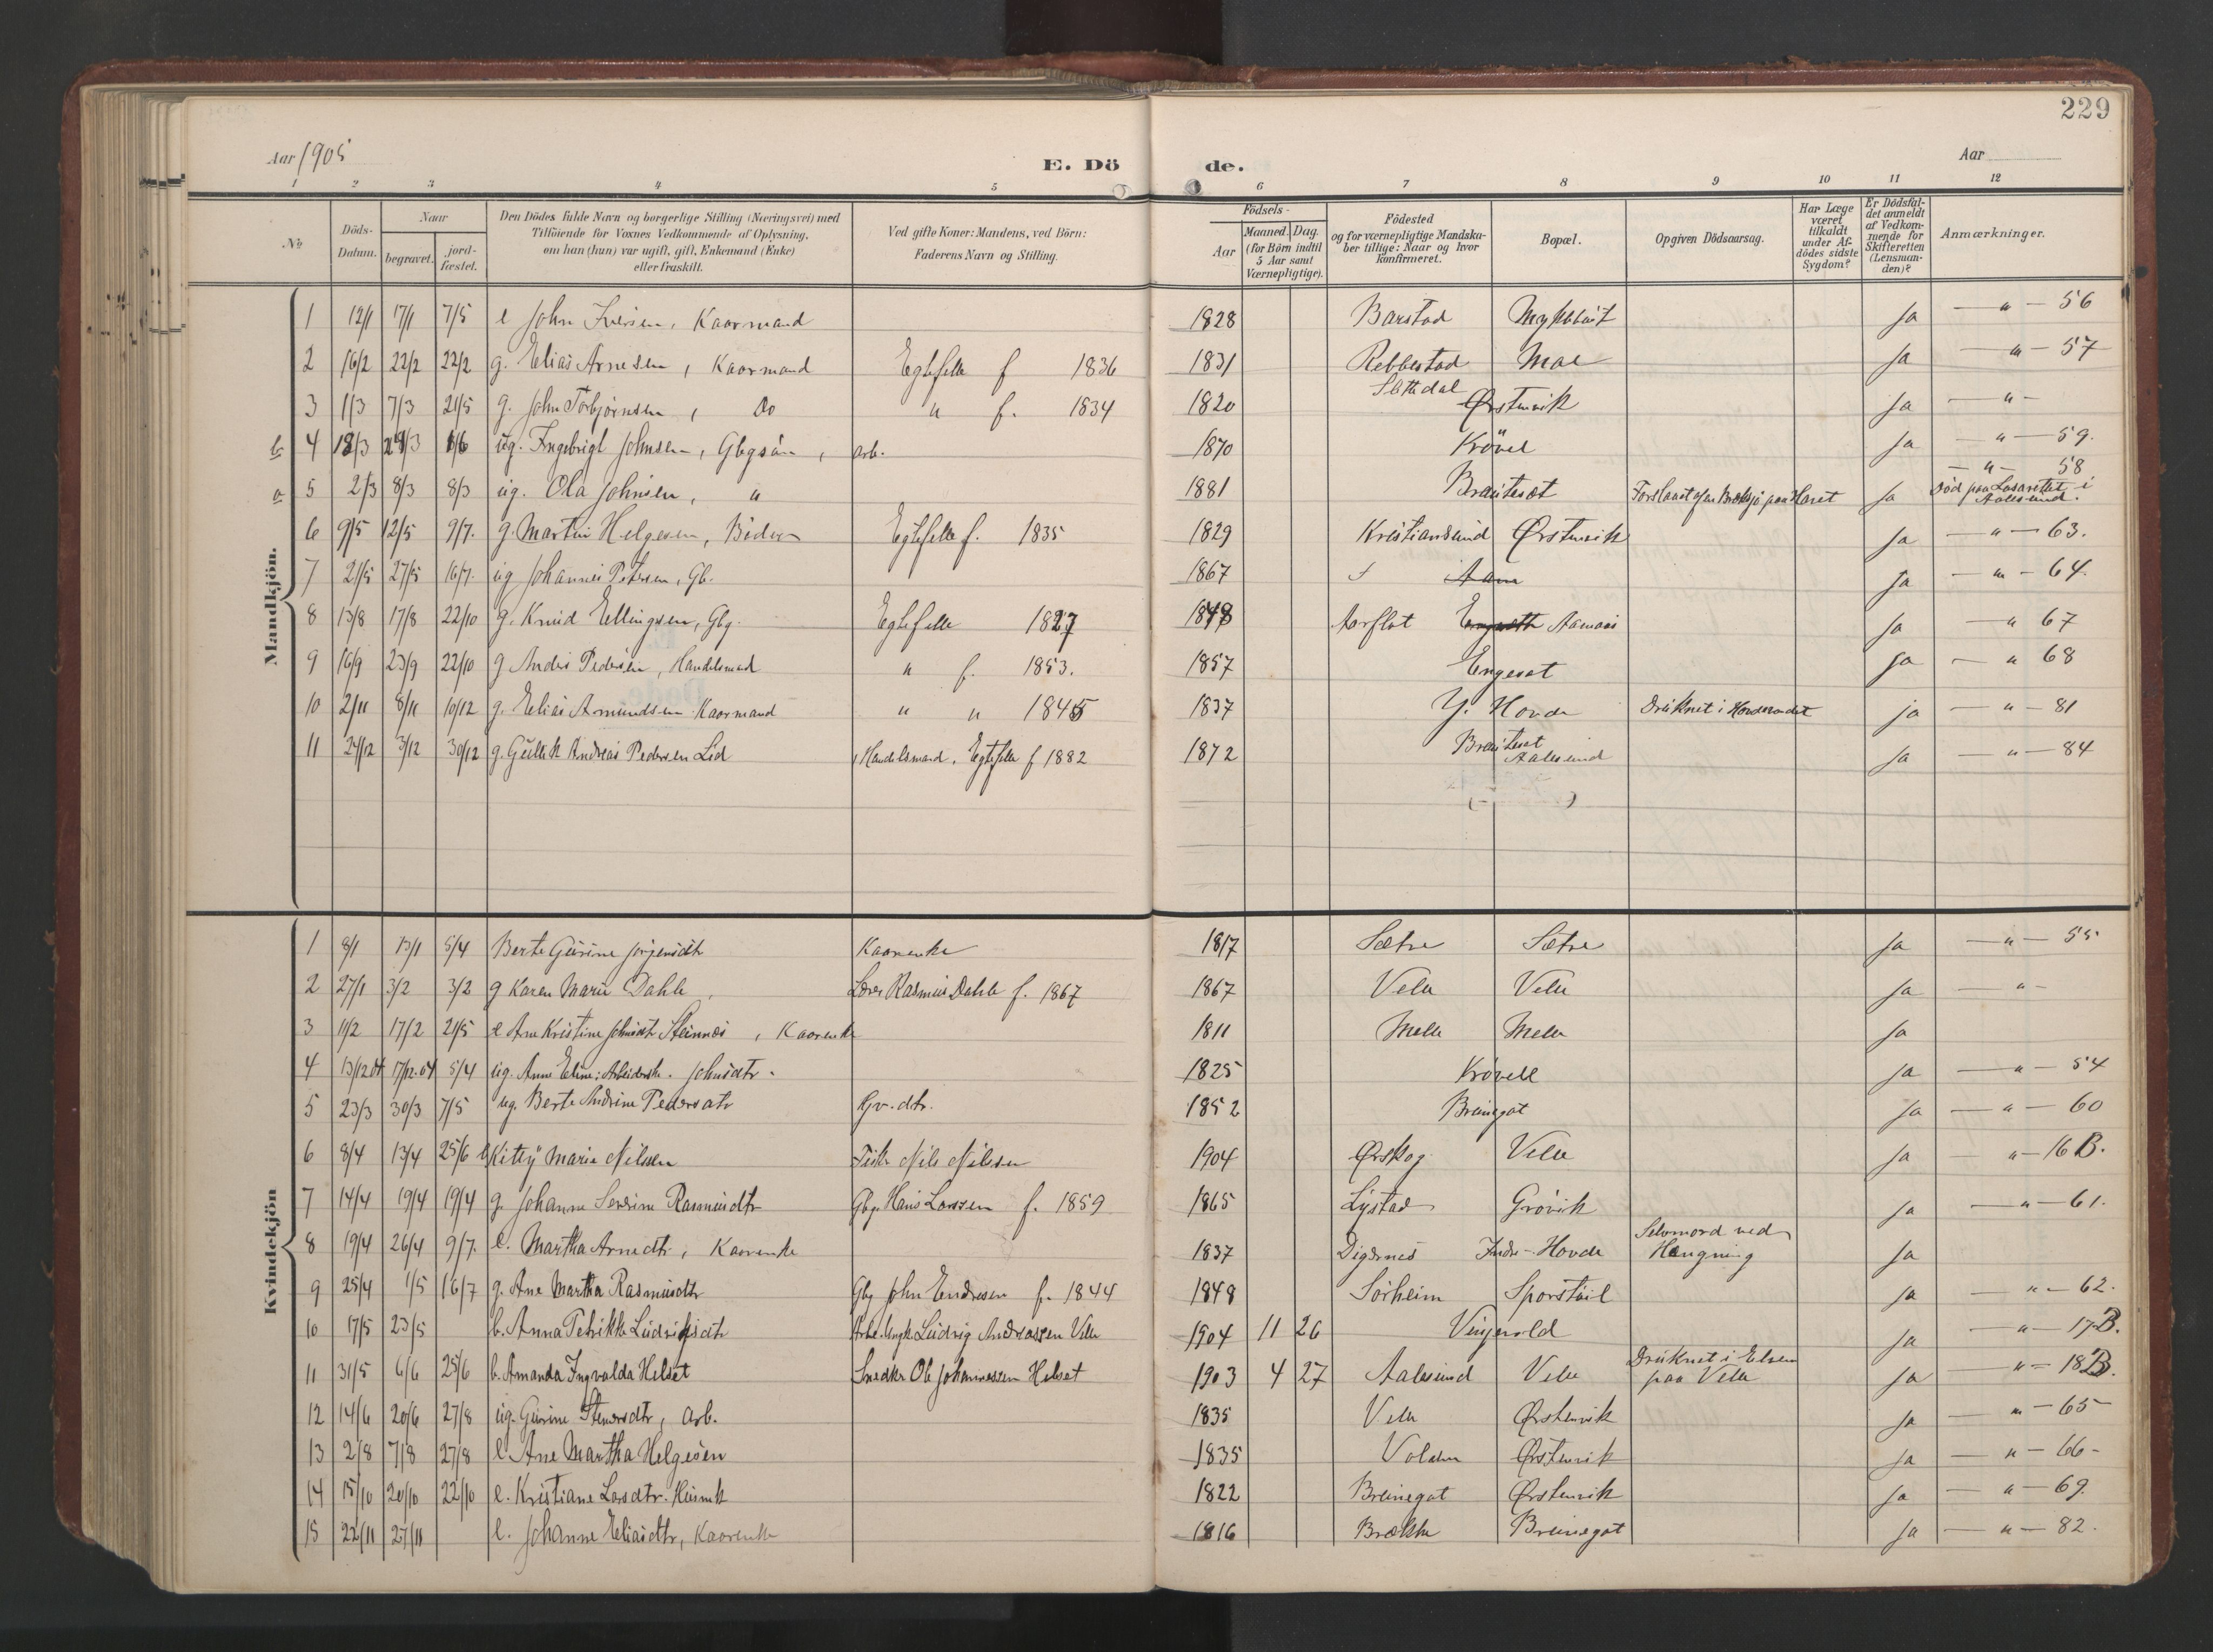 229
Aar 1905
E. Dö de.
Aar
1 2 3 4 5 6 7 8 9 10 11 12
№
Döds-Datum.
Naar
begravet.
jord-fæstet.
Den Dödes fulde Navn og borgerlige Stilling (Næringsvei) med
Tilföiende for Voxnes Vedkommende af Oplysning,
om han (hun) var ugift, gift, Enkemand (Enke)
eller fraskilt.
Ved gifte Koner: Mandens, ved Börn:
Faderens Navn og Stilling.
Födsels-
Aar
Maaned. Dag.
(for Börn indtil
5 Aar samt
Værnepligtige).
Födested
og for værnepligtige Mandska-
ber tillige: Naar og hvor
konfirmeret.
Bopæl.
Opgiven Dödsaarsag.
Har Læge
været
tilkaldt
under Af-
dödes sidste
Sygdom?
Er Dödsfal-
det anmeldt
af Vedkom-
mende for
Skifteretten
(Lensman-
den)?
Anmærkninger.
Mandkjön.
1 12/1 17/1 7/5 e John Iversen, Kaarmand 1828 Barstad Myklebust ja — " — 56
2 16/2 22/2 22/2 g. Elias Arnesen, Kaarmand Egtefelle f 1836 1831 Rebbestad Moe ja " — 57
3 1/3 7/3 21/5 g. John Torbjörnsen, Do " f. 1834 1820 Slettedal Ørstenvik ja — " —
b 4 18/3 24/3 1/6 ug. Ingebrigt Johnsen, Gbgsön, arb. 1870 Krövel ja — " — 59.
a 5 2/3 8/3 8/3 ug. Ola Johnsen, " 1881 Brauteset Forslaaet af en Bræksjö paa Havet ja — " — 58 Död paa Lasarettet i Aalesund.
6 9/5 12/5 9/7. g. Martin Helgesen, Böder Egtefelle f. 1835 1829 Kristiansund Ørstenvik ja — " — 63.
7 21/5 27/5 16/7. ug Johannes Petersen, Gb. 1867 Aam ja — " — 64.
8 13/8 17/8 22/10 g. Knud Ellingsen, Gbg. Egtefelle 1827 1848 Aarflot Aamais ja — " 67
9 16/9 23/9 22/10 g Anders Pedersen, Handelsmad " f. 1853. 1857 Engeset ja — " 68
10 2/11 8/11 10/12 g. Elias Amundsen Kaarmand " " 1845 1837 Y. Hovde Druknet i Hovdevadet ja — " — 81
11 24/12 3/12 30/12 g. Gullik Andreas Pedersen Lid, Handelsmand. Egtefelle f 1882 1872 Brauteset Aalesund ja — " — 84
Kvindekjön
1 8/1 13/1 5/4 Berte Gurine Jörgensdtr Kaarenke 1817 Sætre Sætre ja — " — 55
2 27/1 3/2 3/2 g Karen Marie Dahle, Lærer Rasmus Dahle f. 1867 1867 Velle Velle ja — " —
3 11/2 17/2 21/5 e Ane Kristine Johnsdtr Steinnes, Kaarenke 1811 Melle Melle ja
4 13/12 04 17/12.04 5/4 ug. Anne Eline: Arbeidersk. Johnsdtr. 1825 Krövell ja — " — 54
5 23/3 30/3 7/5 ug. Berte Andrine Pedersdtr Gv. dtr. 1852 Breinegat ja — " — 60
6 8/4 13/4 25/6 b Kitty Marie Nilssen Fisk. Nils Nilssen 1904 Ørskog Velle ja — " — 16 B.
7 14/4 19/4 19/4 g. Johanne Severine Rasmusdtr Gbg. Hans Larssen f. 1859 1865 Lystad Grövik ja — " — 61.
8 19/4 26/4 9/7. e. Martha Arnedtr, Kaarenke 1837 Digernes Indre-Hovde Selvmord ved Hængning ja
9 25/4 1/5 16/7 g. Ane Martha Rasmusdtr Gbg John Endresen f. 1844 1848 Sörheim Sporstöl ja — " — 62.
10 17/5 23/5 b. Anna Petrikke Ludvigsdtr Arb. Ungk. Ludvig Andreassen Velle 1904 11 26 Vinjevold ja — " — 17 B.
11 31/5 6/6 25/6 b. Amanda Ingvalda Helset Snedkr Ole Johannessen Helset 1903 4 27 Aalesund Velle Druknet i Elven paa Velle ja — " — 18 B.
12 14/6 20/6 27/8 ug. Gurine Steversdtr, arb. 1835 Velle Ørstenvik ja — " — 65
13 2/8 7/8 27/8 e Ane Martha Helgesen 1835 Volden Ørstenvik ja — " — 66 -
14 15/10 20/10 22/10 e. Kristiane Larsdtr. Husmk 1822 Breinegat Ørstenvik ja — " — 69.
15 22/11 27/11 e. Johanne Eliasdtr, Kaarenke 1816 Brække Breinegat ja — " — 82.